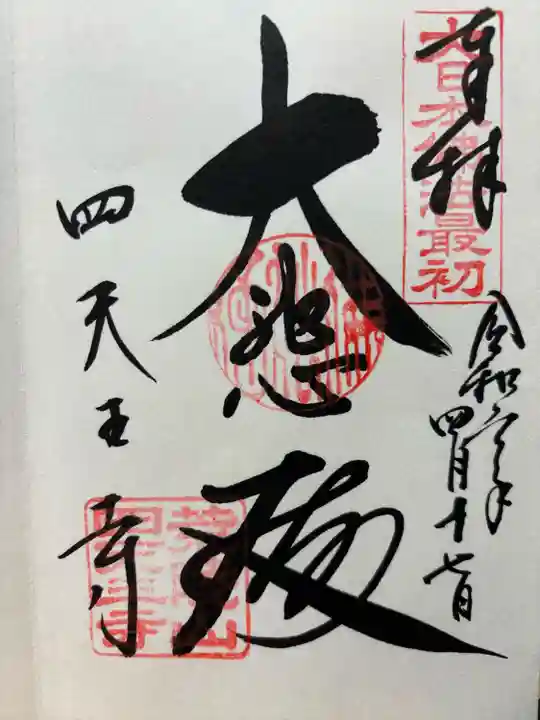 奉拝
大日本佛法最初
令和六年
四月十七日
大悲殿
四天王寺
荒陵山
四天王寺